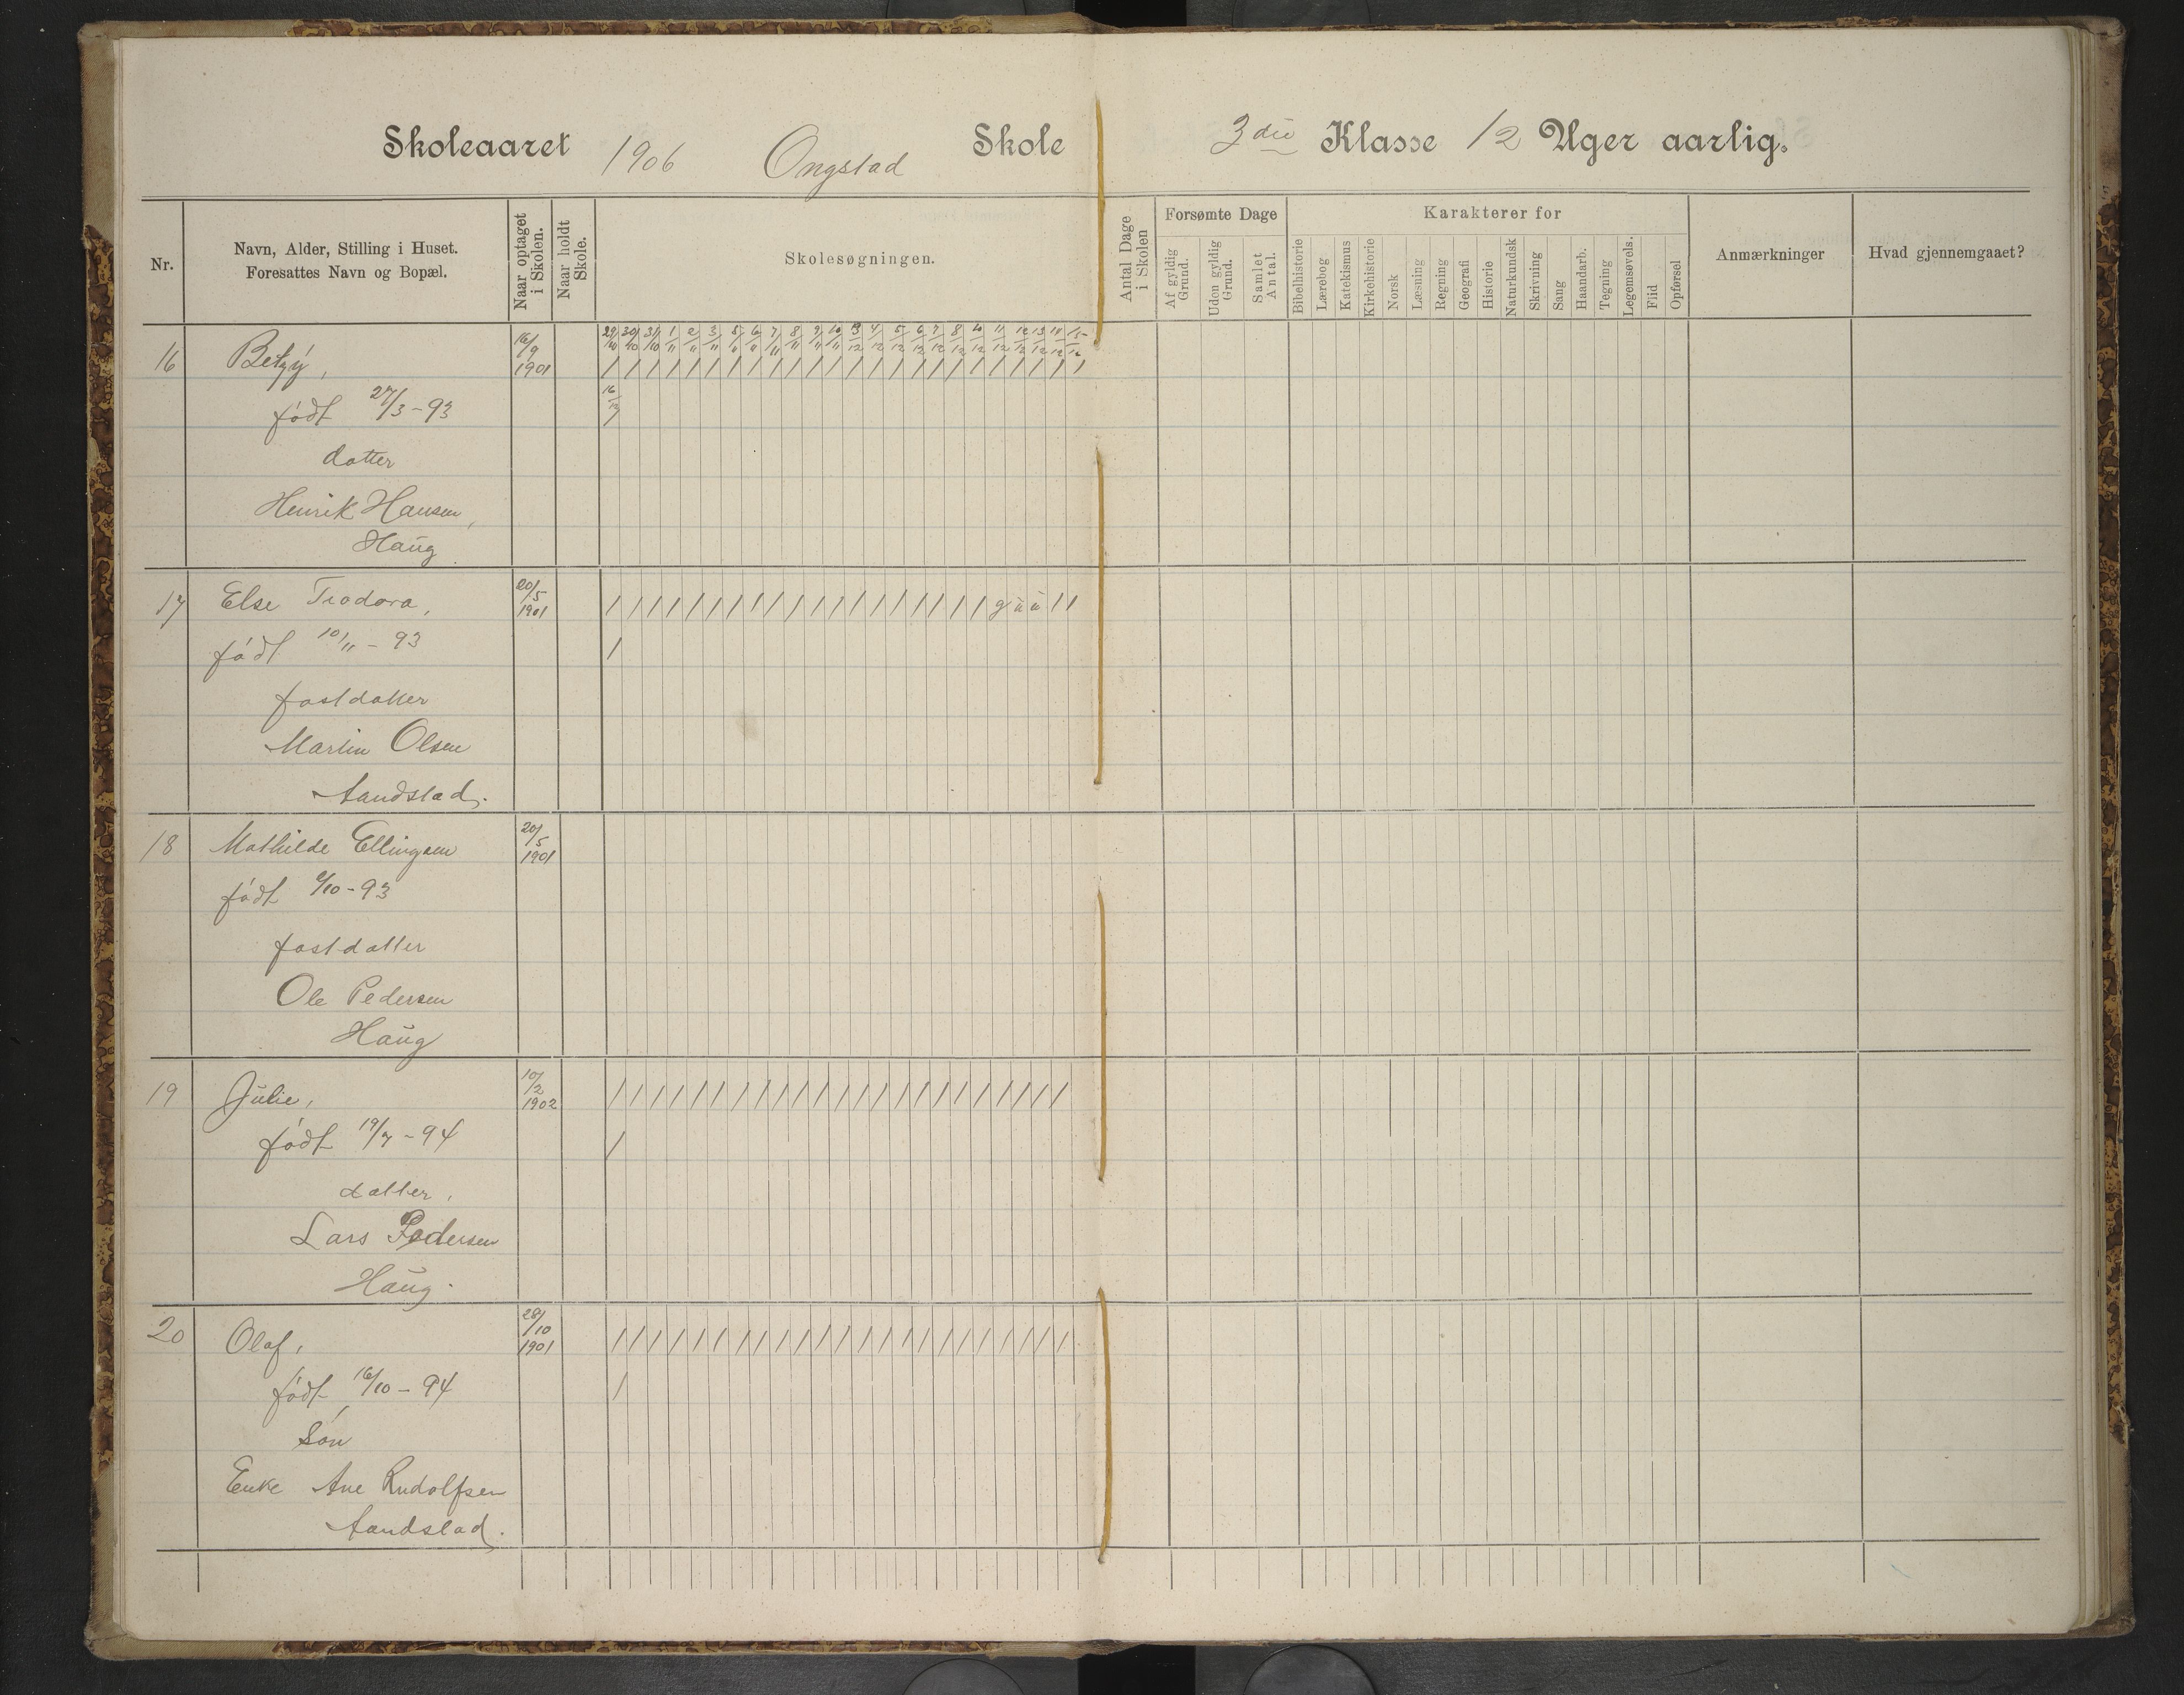 Skoleaaret 1906 Ongstad Skole 3die Klasse 12 Uger aarlig.
Nr.
Navn, Alder, Stilling i Huset.
Foresattes Navn og Bopæl.
Naar optaget
i Skolen.
Naar holdt
Skole.
Skolesøgningen.
Antal Dage
i Skolen
Forsømte Dage
Af gyldig
Grund.
Uden gyldig
Grund.
Samlet
Antal.
Karakterer for
Bibelhistorie
Lærebog
Katekismus
Kirkehistorie
Norsk
Læsning
Regning
Geografi
Historie
Naturkundsk
Skrivning
Sang
Haandarb.
Tegning
Legemsøvels.
Flid
Opførsel
Anmærkninger
Hvad gjennemgaaet?
29/10 30/10 31/10 1/11 2/11 3/11 5/11 6/11 7/11 8/11 9/11 10/11 3/12 4/12 5/12 6/12 7/12 8/12 10/12 11/12 12/12 13/12 14/12 15/12
16 Betzy, 16/9 1901 / / / / / / / / / / / / / / / / / / / / / / / /
født 27/3-93 16/12 /
datter
Henrik Hansen,
Haug
17 Else Teodora, 20/5 1901 / / / / / / / / / / / / / / / / / / / g u u / /
født 10/11-93 /
fostdatter
Martin Olsen
Aandstad.
18 Mathilde Ellingsen 20/5 1901
født /10-93
fostdatter
Ole Pedersen
Haug
19 Julie, 10/2 1902 / / / / / / / / / / / / / / / / / / / / / / / /
født 19/7-94 /
datter,
Lars Pedersen
Haug.
20 Olaf, 28/10 1901 / / / / / / / / / / / / / / / / / / / / / / / /
født 16/10-94 /
Søn
Enke Ane Rudolfsen
Aandstad.